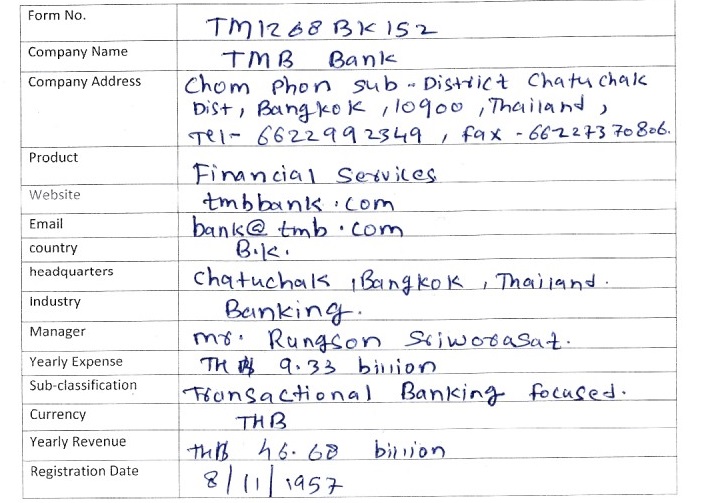 Form No. TM1268BK152
Company Name TMB Bank
Company Address Chom Phon sub-District Chatuchak
Dist, Bangkok, 10900, Thailand,
Tel- 6622992349, fax - 66227370806.
Product Financial Services
Website tmbbank.com
Email bank@tmb.com
country B.K.
headquarters Chatuchak, Bangkok, Thailand.
Industry Banking.
Manager Mr. Rungson Sriworasat.
Yearly Expense THB 9.33 billion
Sub-classification Transactional Banking focused.
Currency THB
Yearly Revenue THB 46.68 billion
Registration Date 8/11/1957